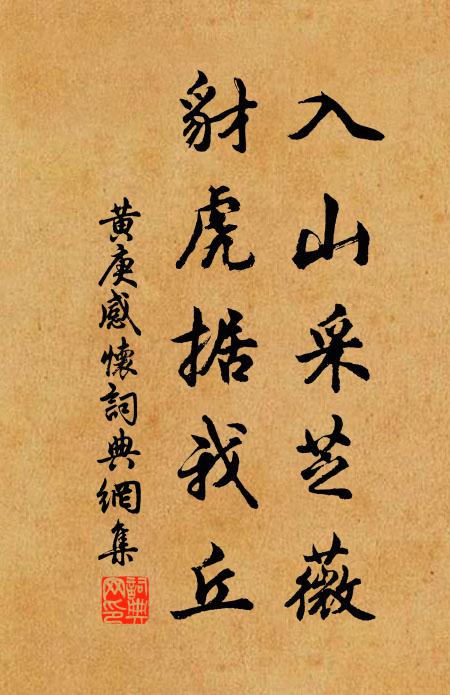 入山采芝薇
豺虎据我丘
黄庚感懷詞典網集
詞典網印